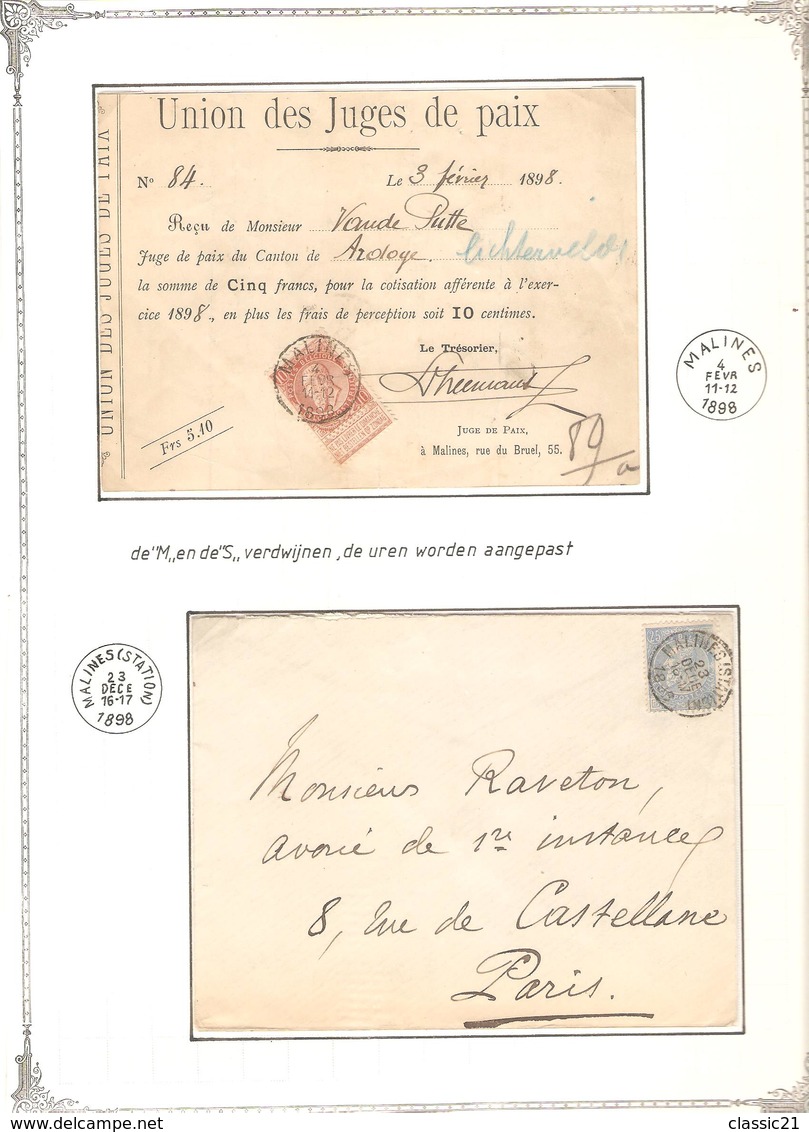 Union des Juges de paix
UNION DES JUGES DE PAIX
N° 84. Le 3 février 1898.
Reçu de Monsieur Vande Putte
Juge de paix du Canton de Ardoye. Lichtervelde
la somme de Cinq francs, pour la cotisation afférente à l'exer-
cice 1898., en plus les frais de perception soit 10 centimes.
Le Trésorier,
MALINES
4
FEVR
11-12
1898
Frs 5.10
JUGE DE PAIX,
à Malines, rue du Bruel, 55.
MALINES
4
FEVR
11-12
1898
de "M„ en de "S„ verdwijnen, de uren worden aangepast
MALINES (STATION)
23
DÉCE
16-17
1898
25
MALINES (STATION)
23
DÉCE
16-17
1898
Monsieur Raveton,
avoué de 1re instance
8, rue de Castellane
Paris.
classic21